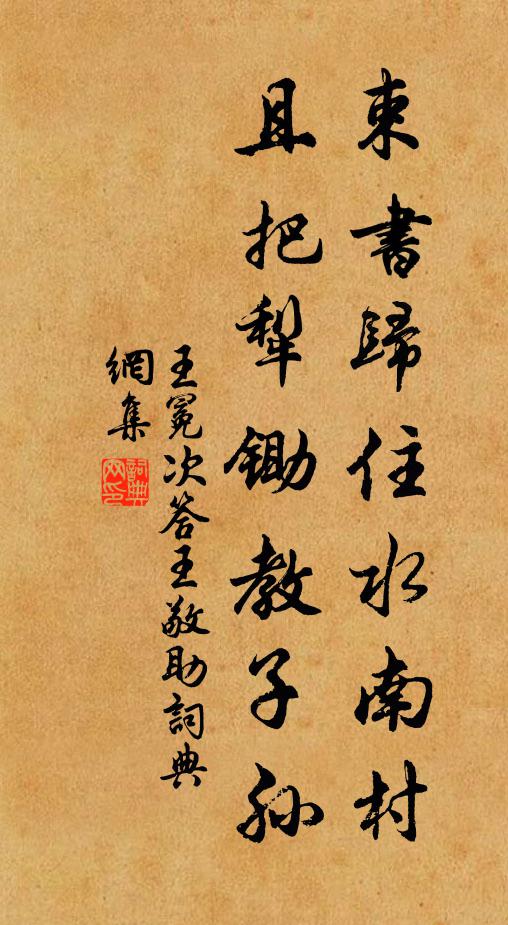 束書歸住水南村
且把犁鋤教子孫
王冕次答王敬助詞典
網集
詞典
网印